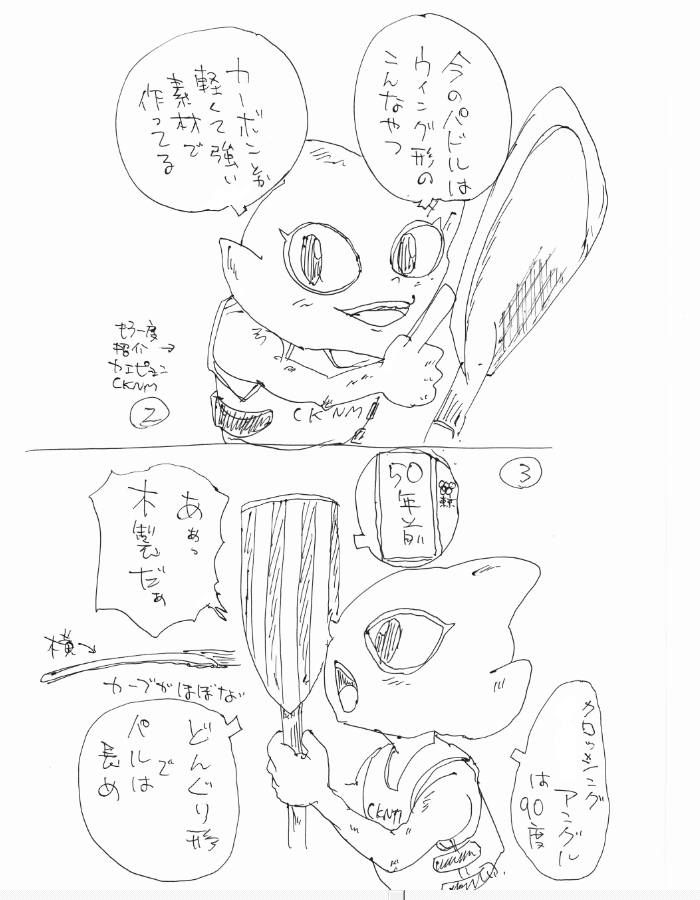 今のパドルは
ウィング形の
こんなやつ
カーボンとか
軽くて強い
素材で
作ってる
もう一度
紹介→
カエピョン
CKNM
②
CKNM
③
50年前
東京
あぁっ
木製だぁ
横→
カーブがほぼない
どんぐり形
で
パルは
長め
CKNM
クロッシング
アングル
は90度